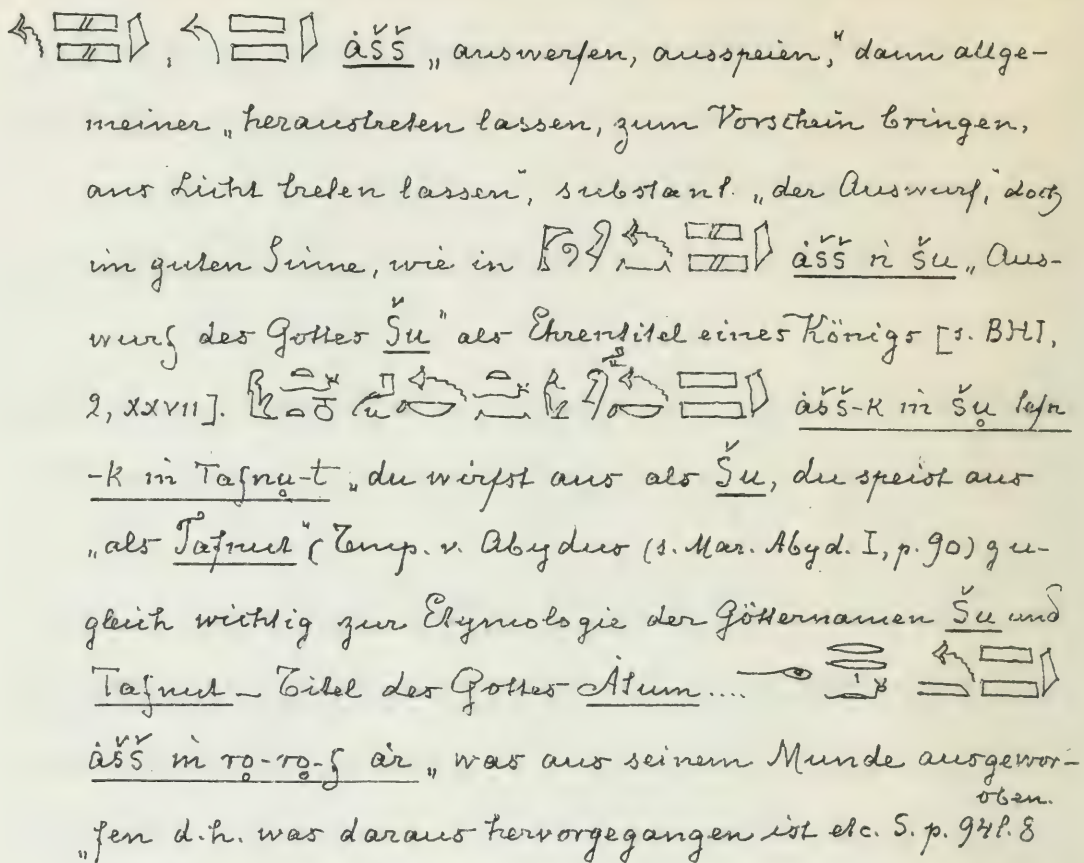 , ȧšš „auswerfen, ausspeien," dann allge-
meiner „heraustreten lassen, zum Vorschein bringen,
ans Licht treten lassen", substant. „der Auswurf," doch
im guten Sinne, wie in ȧšš n Šu „Aus-
wurf des Gottes Šu" als Ehrentitel eines Königs [s. BHI,
2, XXVII]. ȧšš-k m Šu̥ tefn
-k m Tafnu̥-t „du wirfst aus als Šu, du speist aus
„als Tafnut" (Temp. v. Abydus (s. Mar. Abyd. I, p. 90) zu-
gleich wichtig zur Etymologie der Götternamen Šu und
Tafnut – Titel des Gottes Atum....
ȧšš m ro̥-ro̥-f ȧr „was aus seinem Munde ausgewor-
oben.
„fen d.h. was daraus hervorgegangen ist etc. S. p. 94 l. 8